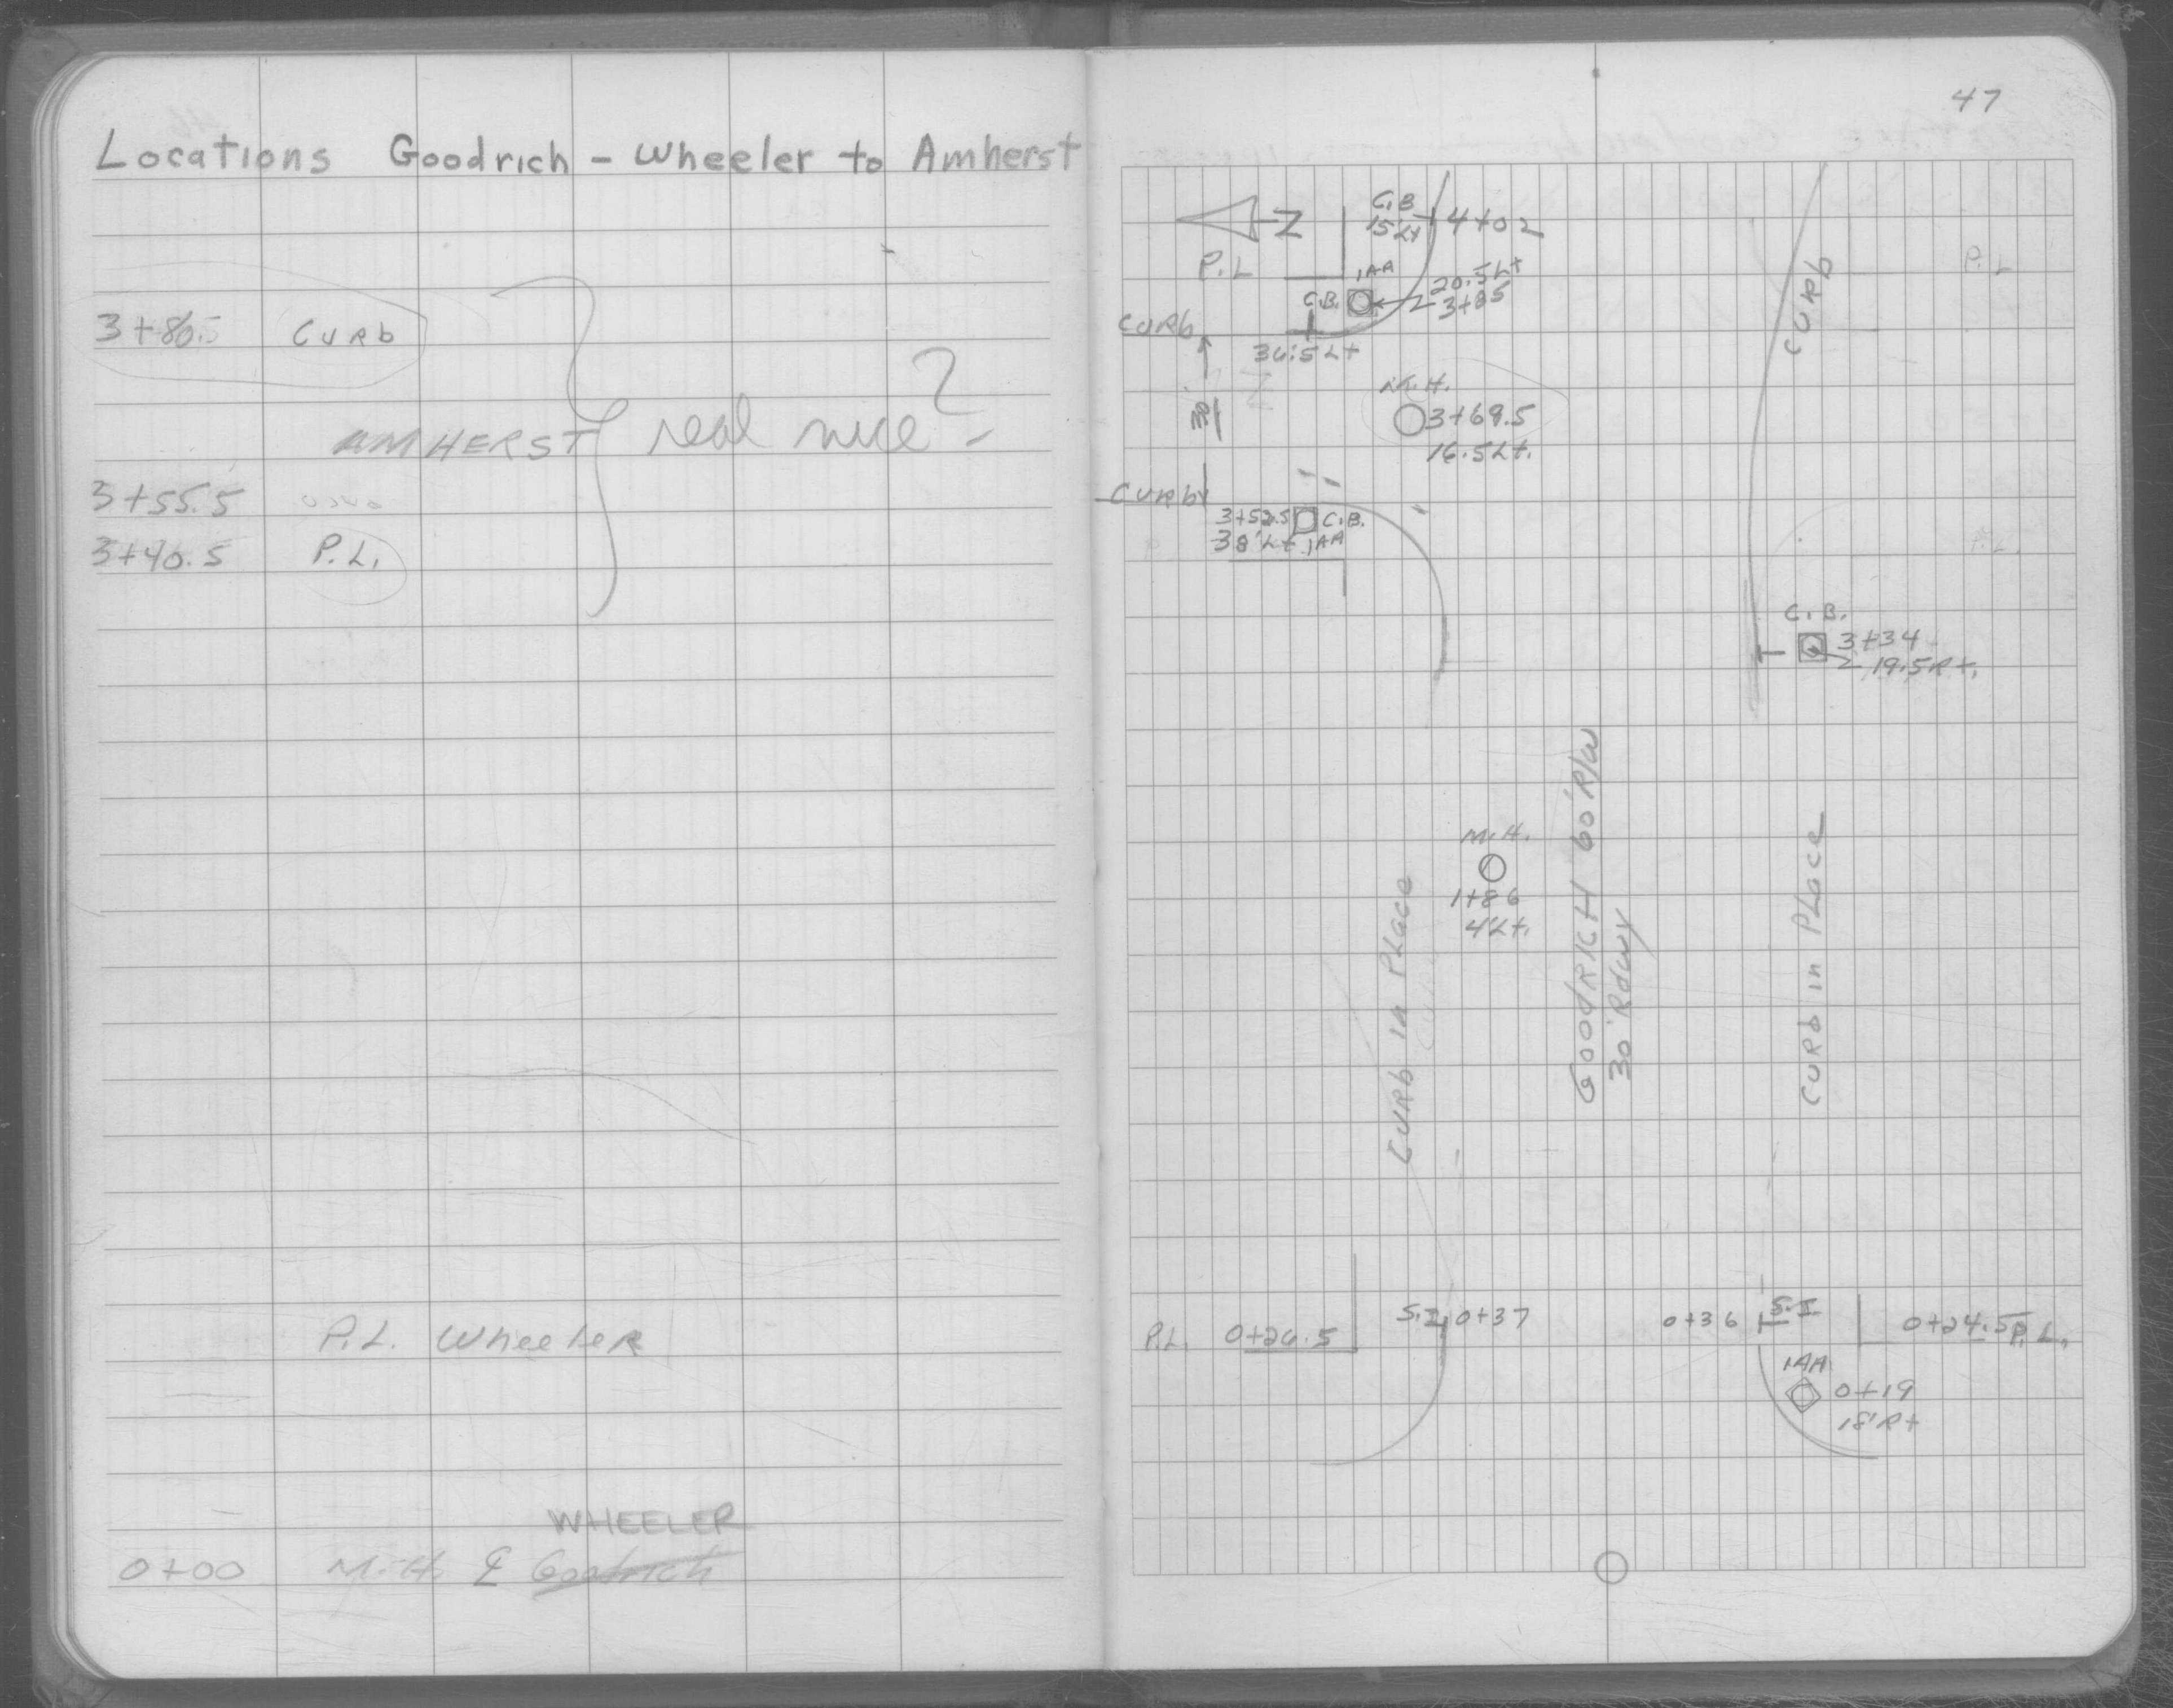 Locations Goodrich - Wheeler to Amherst
3+80.5 CURb
AMHERST real nice?
3+55.5
3+40.5 P.L.
P.L. Wheeler
WHEELER
0+00 M.H. ℄ Goodrich
47
N
C.B
15'Lt 4+02
P.L
P.L
1AA
20.5Lt
C.B. 3+85
CURb
36.5Lt
CURb
30'
M.H.
3+69.5
16.5Lt.
CURb
3+52.5 C.B.
38'Lt 1AA
P.L.
C.B.
3+34
19.5Rt.
GOODRICH 60'R/W
30'Rdwy
M.H.
1+86
4'Lt.
CURb in PLace
CURb in PLace
P.L. 0+26.5 S.I. 0+37 0+36 S.I 0+24.5 P.L.
1AA
0+19
18'Rt